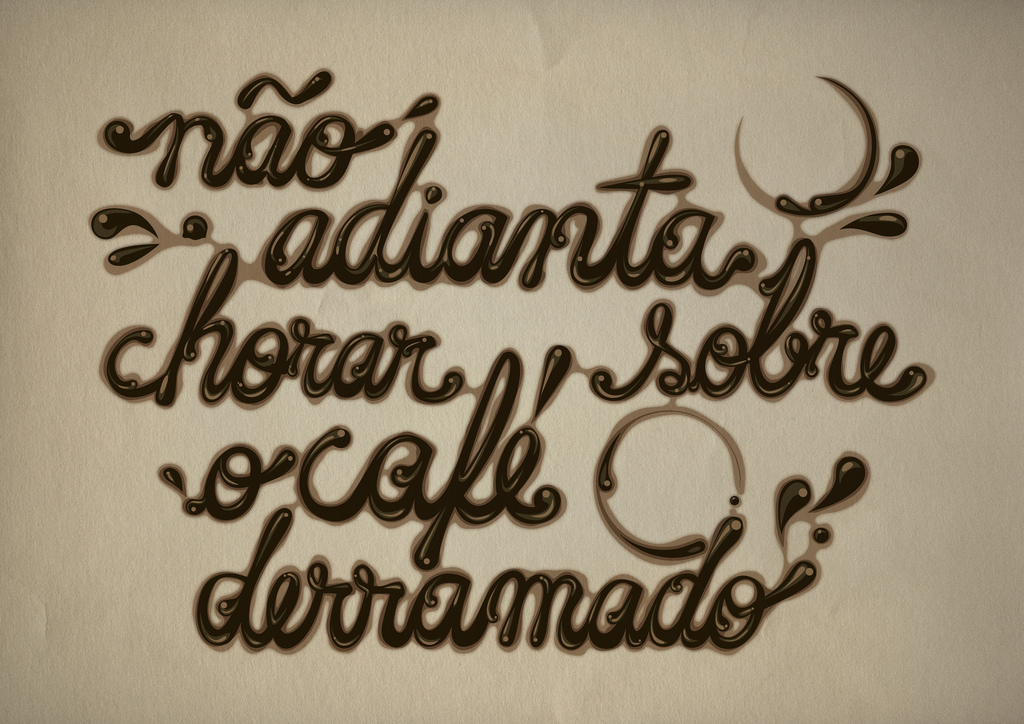 não
adianta
chorar sobre
o café
derramado